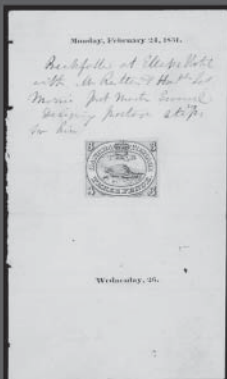 Monday, February 24, 1851.
Breakfast at Ellah's Hotel
with Mr Rutten & Hon. Jas
Morris Post Master General
Designing postage stamps
for him
THREE PENCE
Wednesday, 26.